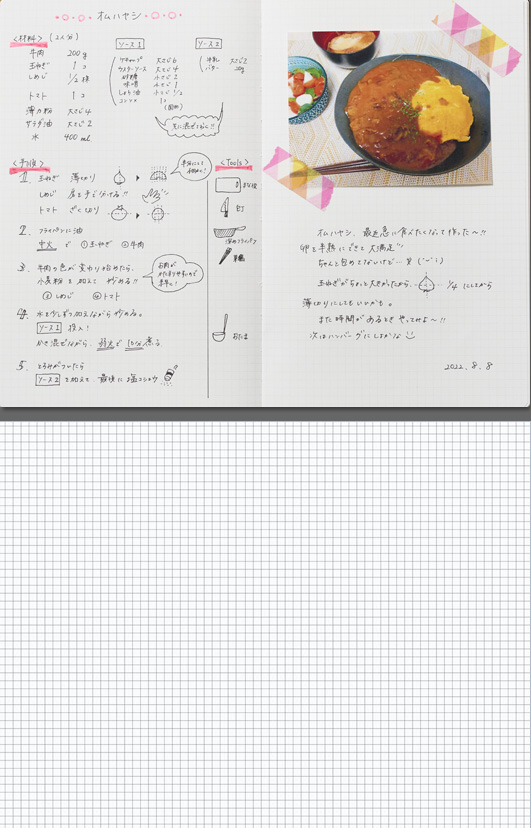 オムハヤシ
<材料> (2人分)
牛肉 200g
玉ねぎ 1コ
しめじ 1/2株
トマト 1コ
薄力粉 大さじ4
サラダ油 大さじ2
水 400ml
ソース1
ケチャップ 大さじ6
ウスターソース 大さじ4
砂糖 小さじ2
味噌 小さじ1
しょう油 小さじ1/2
コンソメ 1コ
(固形)
先に混ぜておく!!
ソース2
牛乳 大さじ2
バター 20g
<手順>
1. 玉ねぎ 薄切り
半分にして
しめじ 房を手で分ける!!
トマト ざく切り
2. フライパンに油
中火 で ①玉ねぎ ②牛肉
3. 牛肉の色が変わり始めたら、
小麦粉を加えて 炒める!!
③しめじ ④トマト
お肉が
4. 水を少しずつ加えながら炒める。
ソース1 投入!
かき混ぜながら、弱火で 10分煮る
5. とろみがついたら
ソース2 を加えて 最後に塩コショウ
<Tools>
まな板
包丁
深めフライパン
おたま
オムハヤシ、最近急に食べたくなって作った〜!!
卵も半熟にできて大満足
ちゃんと包めてないけど…笑
玉ねぎがちょっと大きかったから、 1/4にしてから
薄切りにしてもいいかも。
また時間があるときやってみよ〜!!
次はハンバーグにしようかな
2022.8.8